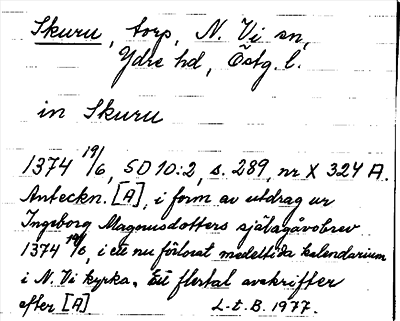 Skuru, torp, N. Vi sn,
Ydre hd, Östg. l.
in Skuru
1374 19/6, SD 10:2, s. 289, nr X 324 A.
Anteckn. [A], i form av utdrag ur
Ingeborg Magnusdotters själagåvobrev
1374 19/6, i ett nu förlorat medeltida kalendarium
i N. Vi kyrka. Ett flertal avskrifter
efter [A] L-t. B. 1977.